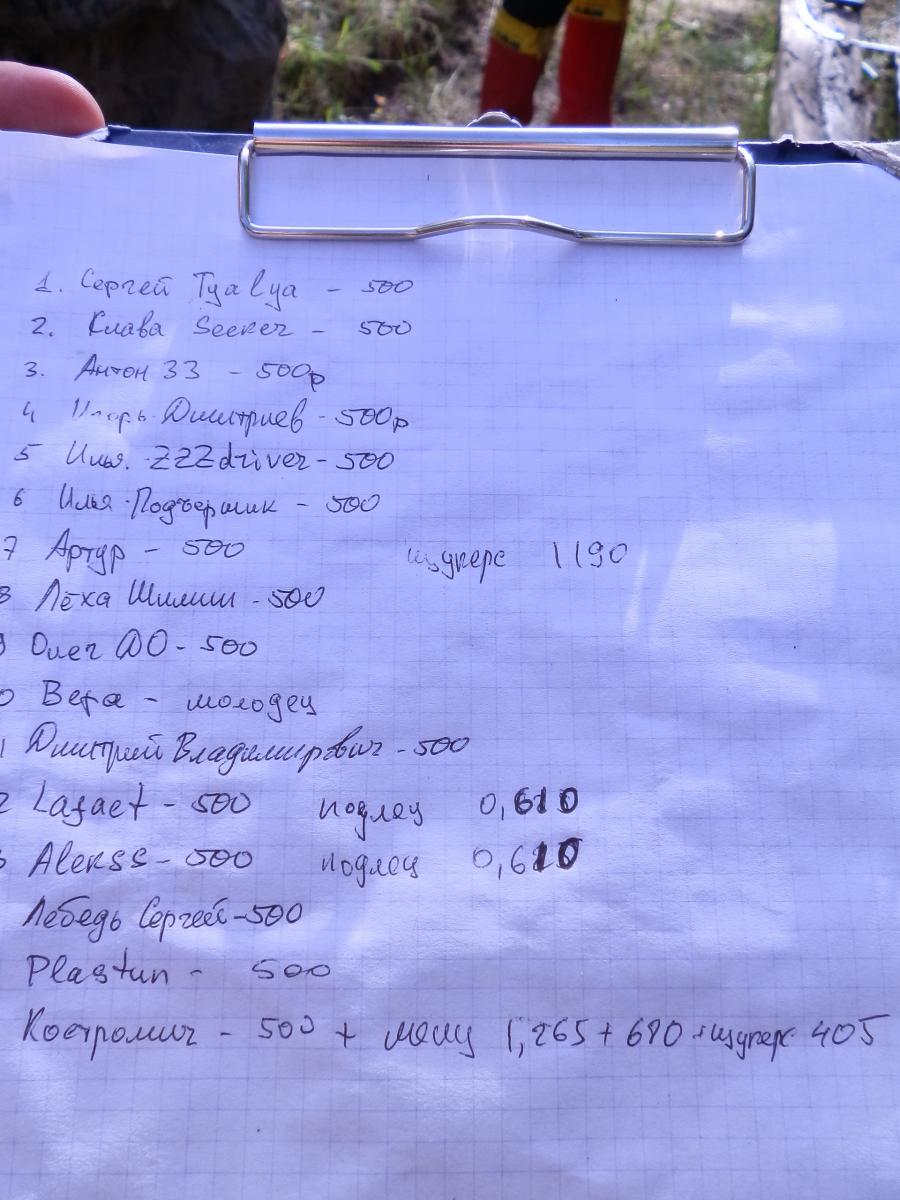 1. Сергей Tyalya - 500
2. Клава Seeker - 500
3. Антон 33 - 500р
4 Игорь Дмитриев - 500р
5 Илья. ZZZdriver - 500
6 Илья Подъершик - 500
7 Артур - 500 щукарс 1190
8 Лёха Шилиш - 500
9 Олег DO - 500
0 Вера - молодец
1 Дмитрий Владимирович - 500
2 Lazaet - 500 подлец 0,610
Alekss - 500 подлец 0,610
Лебедь Сергей - 500
Plastun - 500
Костромич - 500 + 1,265 + 680 + 405